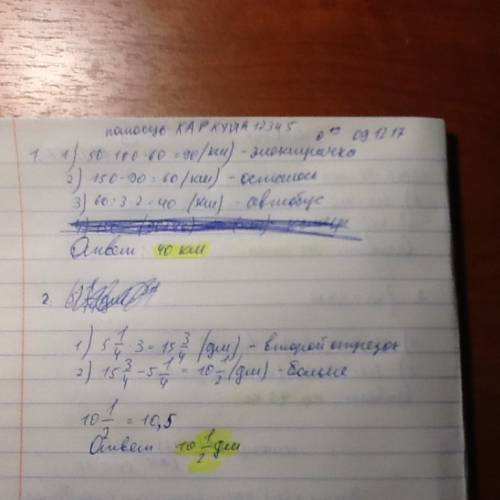 помощь КАРКУША12345 09.12.17
1. 1) 50:100·60=90 (км) - электричка
2) 150-90=60 (км) - осталось
3) 60:3·2=40 (км) - автобус
Ответ: 40 км
2.
1) 5 1/4 · 3 = 15 3/4 (дм) - второй отрезок
2) 15 3/4 - 5 1/4 = 10 1/2 (дм) - больше
10 1/2 = 10,5
Ответ: 10 1/2 дм